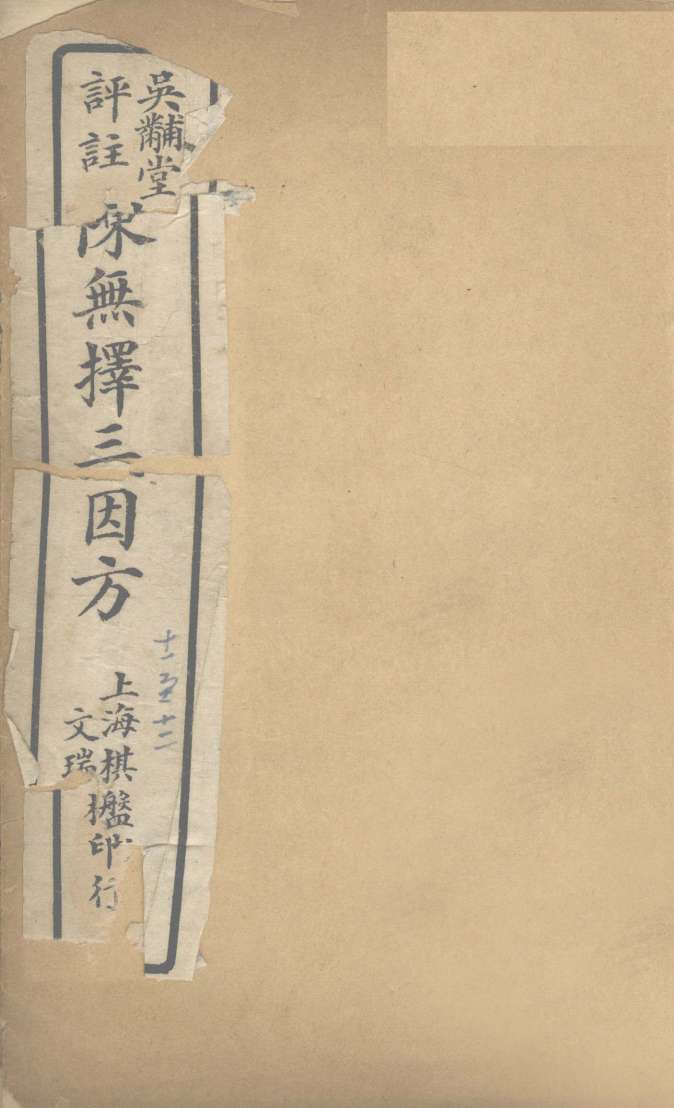 吳黼堂
評註
陳無擇三因方
十一至十二
上海棋盤
文瑞樓印行